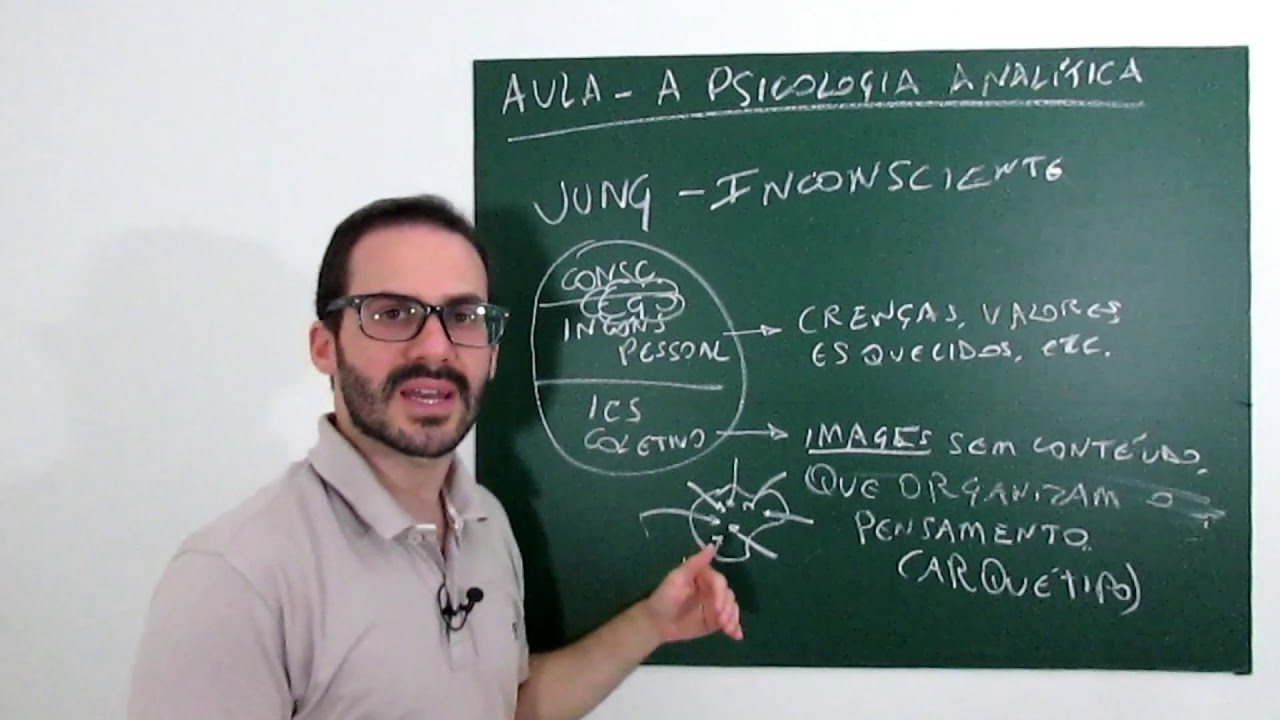 AULA - A PSICOLOGIA ANALÍTICA
JUNG - INCONSCIENTE
CONSC.
EG
INCONS
PESSOAL
CRENÇAS, VALORES,
ESQUECIDOS, ETC.
ICS
COLETIVO
IMAGES SEM CONTEÚDO,
QUE ORGANIZAM O
PENSAMENTO.
(ARQUÉTIPO)